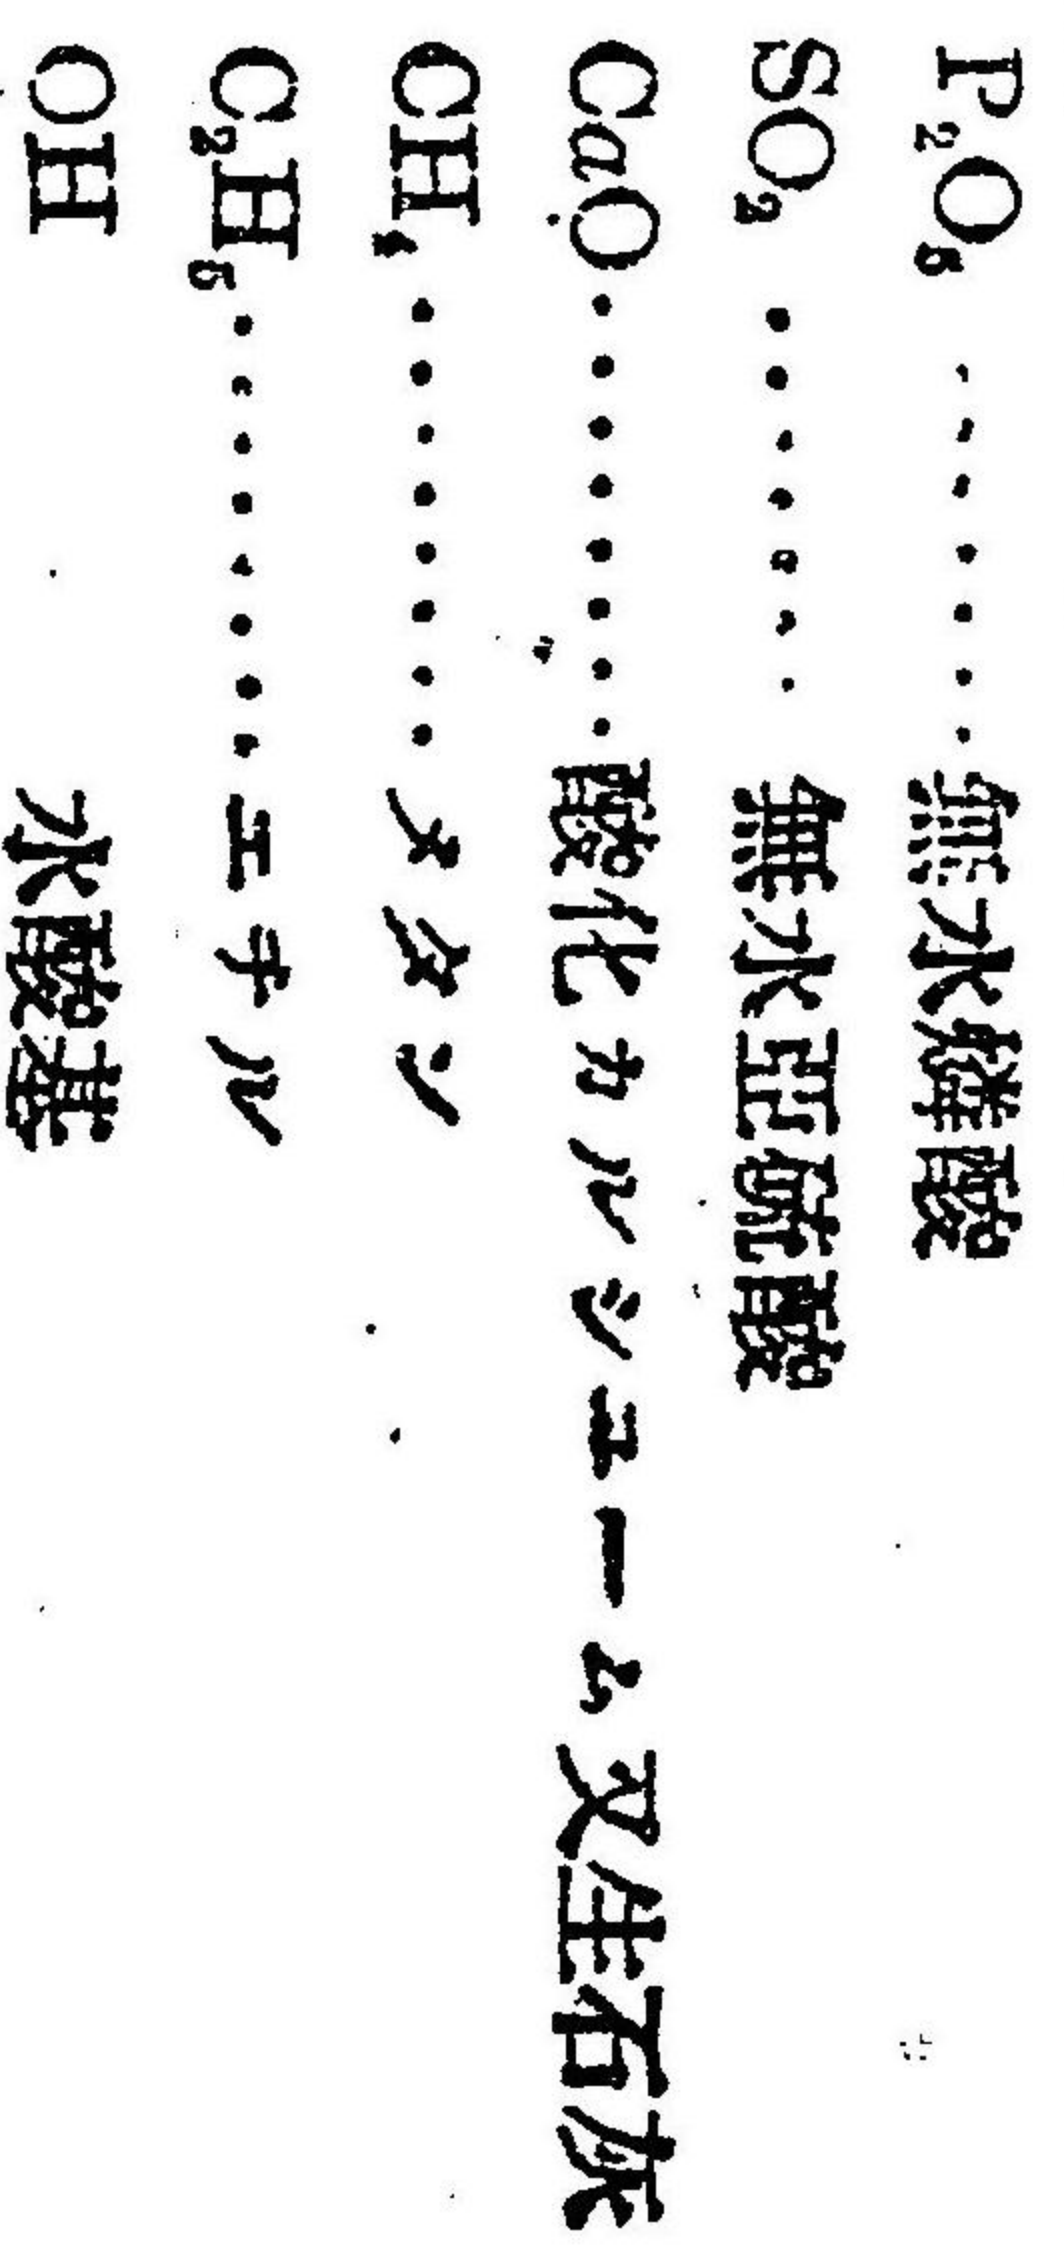 P₂O₅.......無水燐酸
SO₂.......無水亞硫酸
CaO........酸化カルシユーム又生石灰
CH₄........メタン
C₂H₅........エチル
OH 水酸基